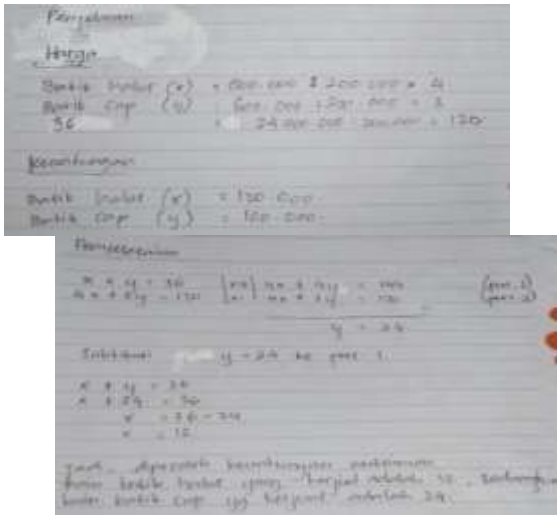 Penyelesaian
Harga
Batik halus (x) = 800.000 : 200.000 = 4
Batik cap (y) = 600.000 : 200.000 = 3
36 = 24.000.000 : 200.000 = 120
Keuntungan
Batik halus (x) = 120.000
Batik cap (y) = 100.000
x + y = 36 |x4| 4x + 4y = 144 (pers. 1)
4x + 3y = 120 |x1| 4x + 3y = 120 (pers. 2)
y = 24
Subtitusi y = 24 ke pers 1.
x + y = 36
x + 24 = 36
x = 36 - 24
x = 12
Jadi, diperoleh keuntungan maksimum
batik halus yang terjual adalah 12, sedangkan
batik cap yg terjual adalah 24.